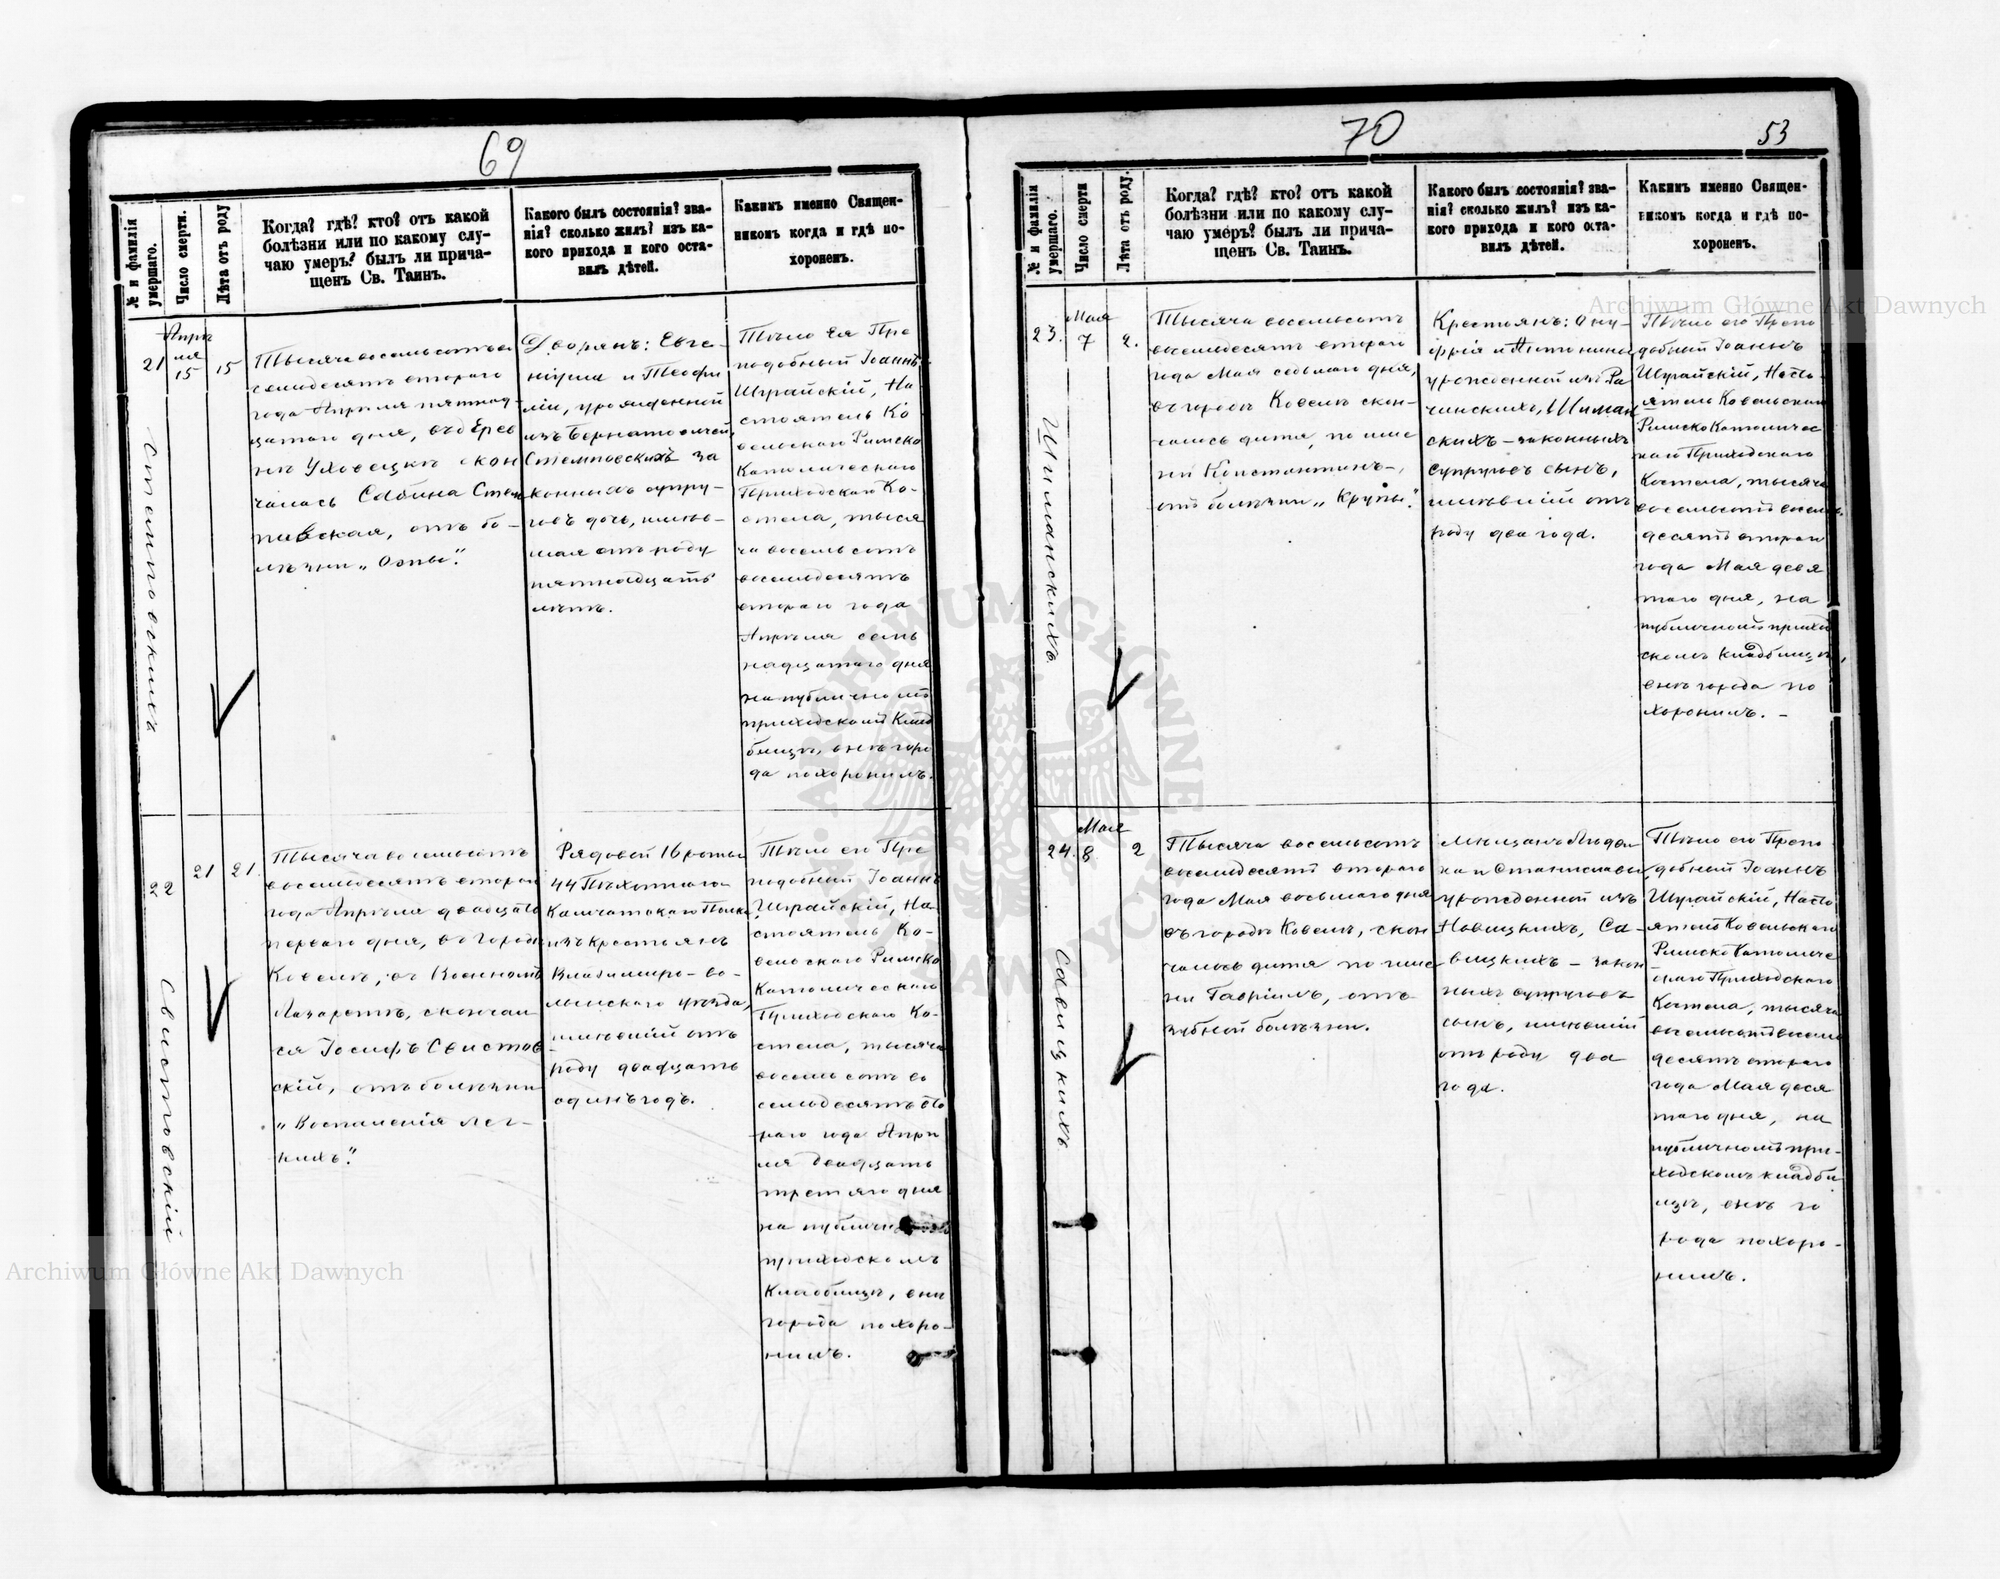 69
№ и фамилія умершаго.
Число смерти.
Лѣта отъ роду
Когда? гдѣ? кто? отъ какой
болѣзни или по какому слу-
чаю умеръ? былъ ли прича-
щенъ Св. Таинъ.
Какого былъ состоянія? зва-
нія? сколько жилъ? изъ ка-
кого прихода и кого оста-
вилъ дѣтей.
Какимъ именно Священ-
никомъ когда и гдѣ по-
хороненъ.
21
Стемповскихъ
Апрѣ
ля
15
15
Тысяча восемьсотъ во
семидесятъ втораго
года Апрѣля пятнад-
цатаго дня, въ дерев
нѣ Уховецкъ скон
чалась Сабина Стем
повская, отъ бо-
лѣзни „Оспы".
Дворянъ: Евге-
ніуша и Теофи
ліи, урожденной
изъ Бернатовичей,
Стемповскихъ за
конныхъ супру-
говъ дочь, имѣв-
шая отъ роду
пятнадцать
лѣтъ.
Тѣло Ея Пре
подобный Іоаннъ
Шурайскій, На
стоятель Ко
вельскаго Римско
Католическаго
Приходскаго Ко-
стела, тыся
ча восемьсотъ
восемьдесятъ
втораго года
Апрѣля семь
надцатаго дня
на публичномъ
приходскомъ Клад
бищѣ, внѣ горо
да похоронилъ.
22
Свистовскій
21
21.
Тысяча восемьсотъ
восемьдесятъ втораго
года Апрѣля двадцать
перваго дня, въ городѣ
Ковелѣ, въ Военномъ
Лазаретѣ, скончал
ся Іосифъ Свистов
скій, отъ болѣзни
„Воспаленія лег-
кихъ".
Рядовой 16 роты
44 Пѣхотнаго
Камчатскаго Полка
изъ Крестьянъ
Владиміро-во-
лынскаго уѣзда,
имѣвшій отъ
роду двадцать
одинъ годъ.
Тѣло его Пре
подобный Іоаннъ
Шурайскій, На-
стоятель Ко-
вельскаго Римско
Католическаго
Приходскаго Ко-
стела, тысяча
восемьсотъ во
семьдесятъ вто
раго года Апрѣ
ля двадцать
третяго дня
на публичн
приходскомъ
Кладбищѣ, внѣ
города похоро-
нилъ.
70
53
№ и фамилія умершаго.
Число смерти
Лѣта отъ роду.
Когда? гдѣ? кто? отъ какой
болѣзни или по какому слу-
чаю умеръ? былъ ли прича-
щенъ Св. Таинъ.
Какого былъ состоянія? зва-
нія? сколько жилъ? изъ ка-
кого прихода и кого оста-
вилъ дѣтей.
Какимъ именно Священ-
никомъ когда и гдѣ по-
хороненъ.
23.
Шиманскихъ.
Мая
7
2.
Тысяча восемьсотъ
восемьдесятъ втораго
года Мая седьмаго дня,
въ городѣ Ковелѣ скон-
чалось дитя, по име
ни Константинъ,
отъ болѣзни „Крупы".
Крестьянъ: Ону-
фрія и Антонины
урожденной изъ Ра
чинскихъ, Шиман
скихъ – законныхъ
супруговъ сынъ,
имѣвшій отъ
роду два года.
Тѣло его Препо
добный Іоаннъ
Шурайскій, Насто-
ятель Ковельскаго
Римско Католичес
каго Приходскаго
Костела, тысяча
восемьсотъ восемь
десятъ втораго
года Мая девя
таго дня, на
публичномъ приход
скомъ кладбищѣ,
внѣ города по
хоронилъ. –
24.
Савицкихъ
Мая
8
2
Тысяча восемьсотъ
восемьдесятъ втораго
года Мая восьмаго дня
въ городѣ Ковелѣ, скон
чалось дитя по име
ни Гавріилъ, отъ
зубной болѣзни.
Мѣщанъ Богда
на и Станиславы
урожденной изъ
Новицкихъ, Са-
вицкихъ – закон
ныхъ супруговъ
сынъ, имѣвшій
отъ роду два
года.
Тѣло его Препо
добный Іоаннъ
Шурайскій, Насто
ятель Ковельскаго
Римско Католиче
скаго Приходскаго
Костела, тысяча
восемьсотъ восемь
десятъ втораго
года Мая деся
таго дня, на
публичномъ при-
ходскомъ кладби
щѣ, внѣ го
рода похоро-
нилъ.
Archiwum Główne Akt Dawnych
Archiwum Główne Akt Dawnych
ARCHIWUM GŁÓWNE AKT DAWNYCH